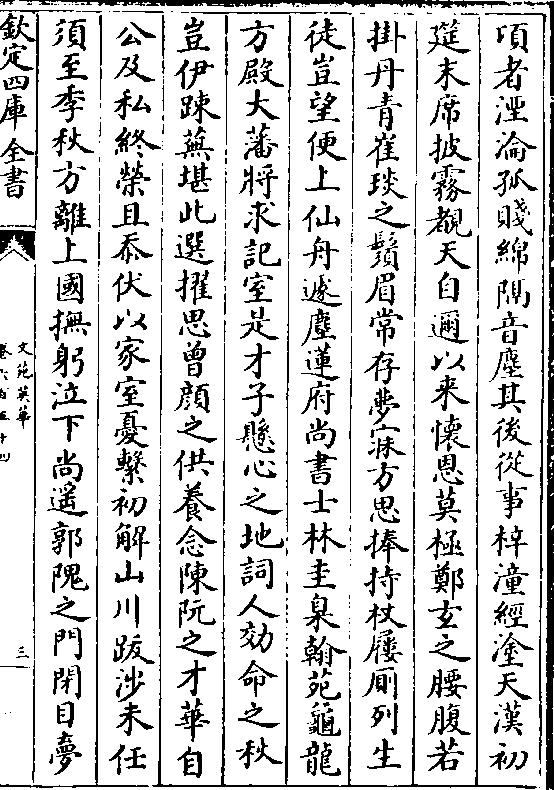 項者湮淪孤賤綿隔音塵其後從事梓潼經塗天漢初
筵末席披霧覩天自邇以來懷恩莫極鄭玄之腰腹若
掛丹青崔琰之鬚眉常存夢寐方思捧持杖屨厠列生
徒豈望便上仙舟遽塵蓮府尚書士林圭臬翰苑龜龍
方殿大藩將求記室是才子懸心之地詞人効命之秋
豈伊踈蕪堪此選擢思曾顔之供養念陳阮之才華自
公及私終榮且忝伏以家室憂繫初解山川跋涉未任
須至季秋方離上國撫躬泣下尚遥郭隗之門閉目夢
欽定四庫全書
文苑英華
卷六百五十四
三